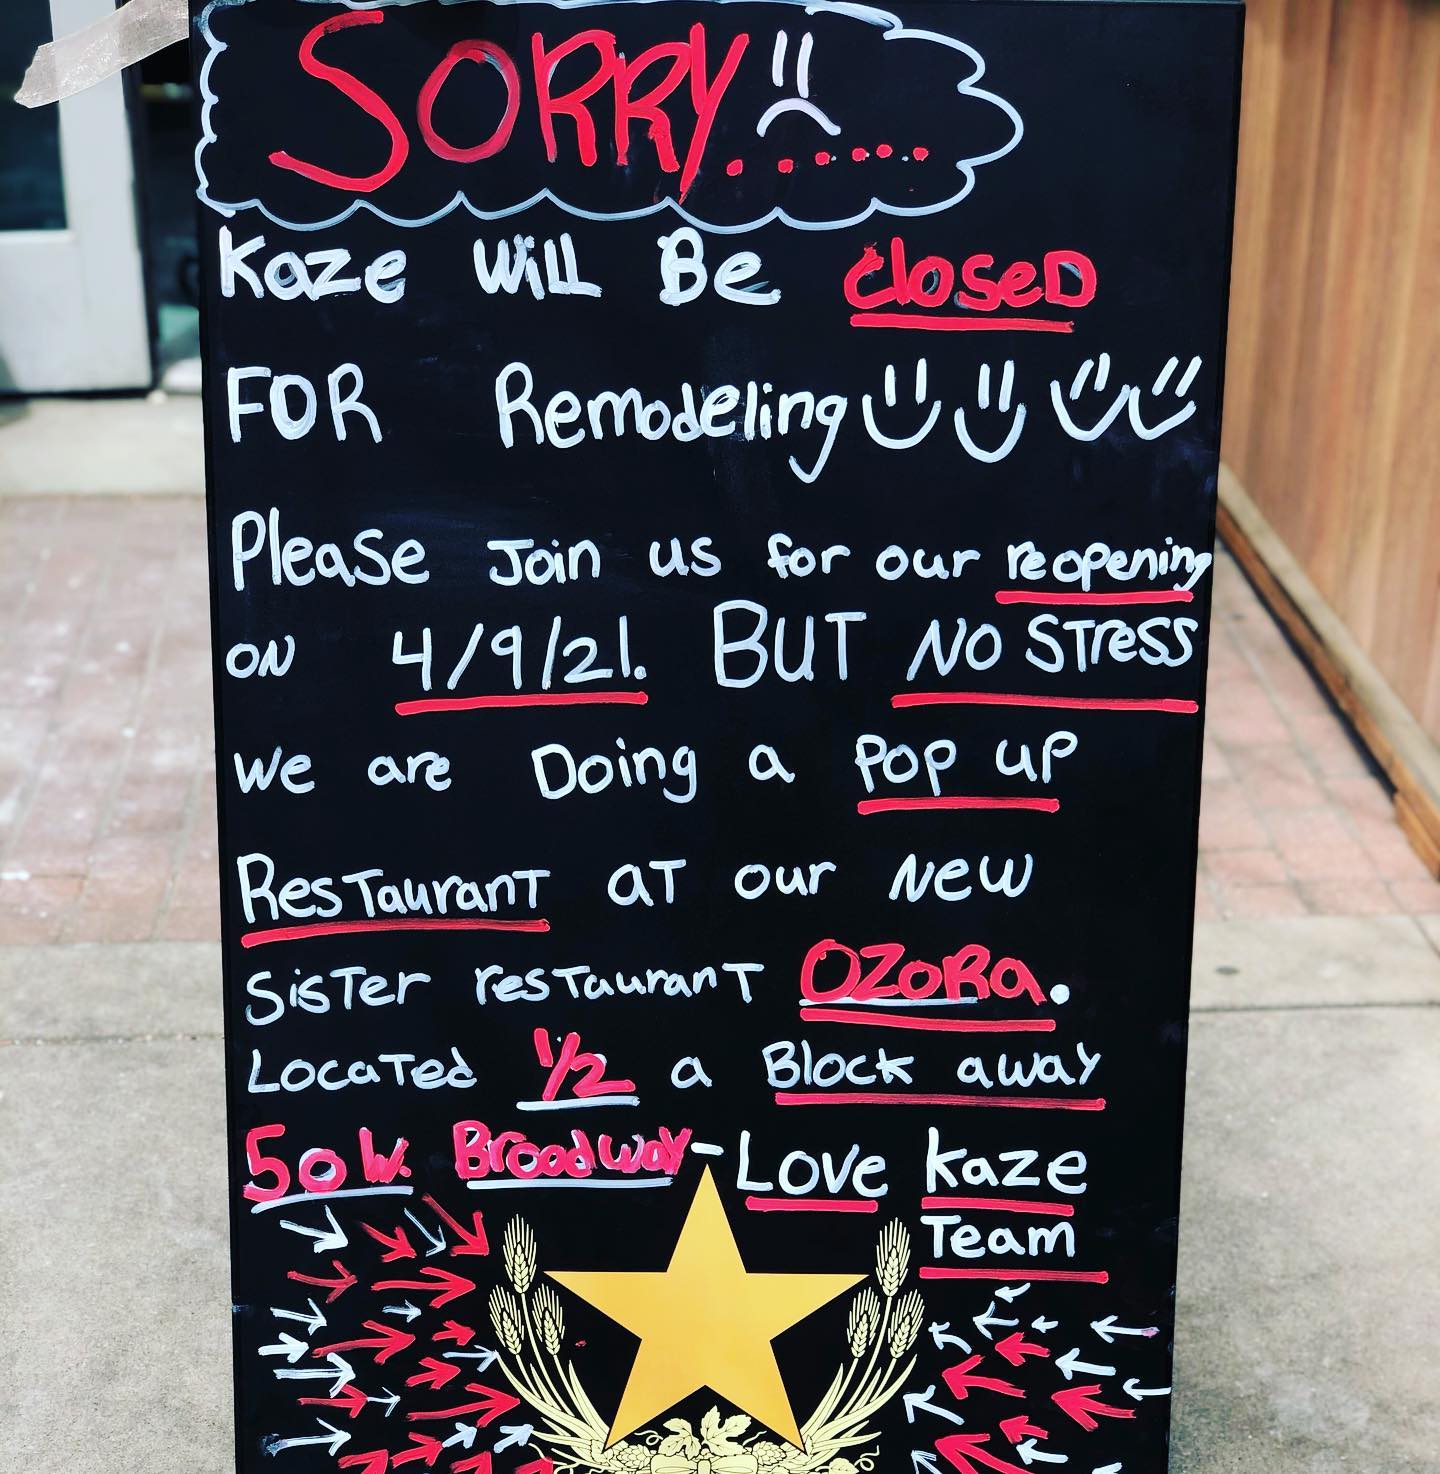 SORRY.......
Kaze Will Be closed
FOR Remodeling
Please Join us for our reopening
ON 4/9/21. BUT NO STress
We are Doing a Pop up
ResTauranT aT our New
SisTer resTauranT OZoRa.
LocaTed 1/2 a Block away
50 W. Broadway - Love Kaze
Team